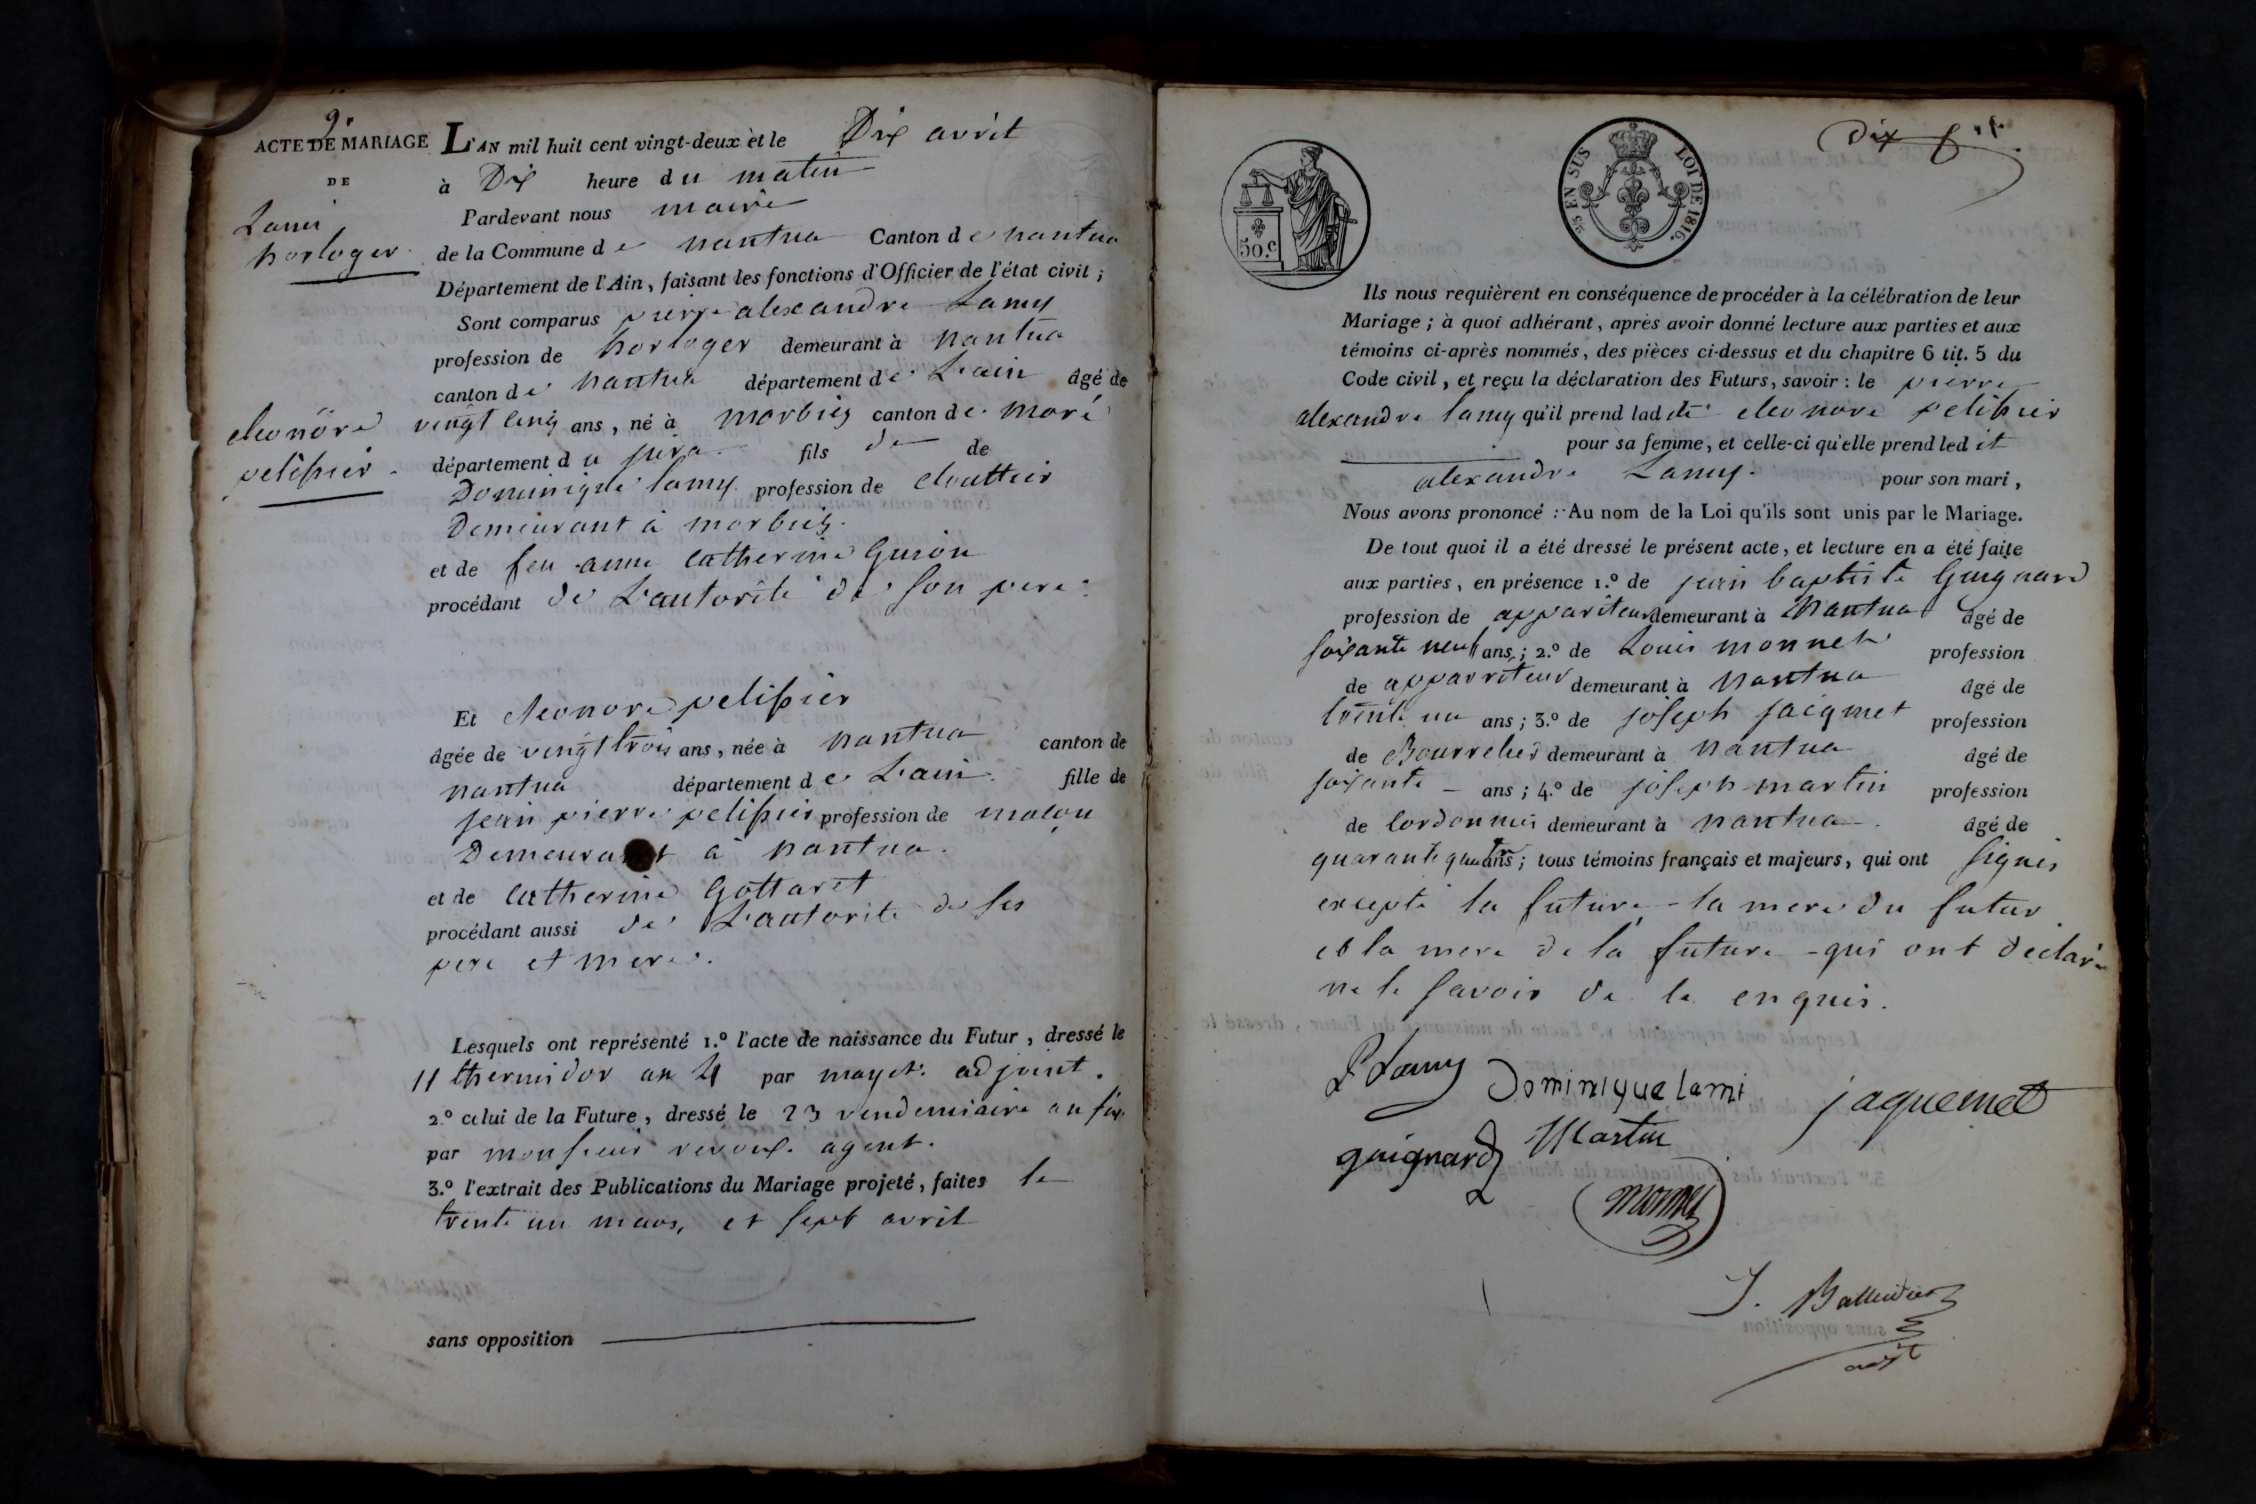 9e
ACTE DE MARIAGE
DE
Lami
horloger.
eleonore
pelissier.
L'AN mil huit cent vingt-deux et le Dix avril
à Dix heure du matin
Pardevant nous maire
de la Commune de nantua Canton de nantua
Département de l'Ain, faisant les fonctions d'Officier de l'état civil ;
Sont comparus pierre alexandre Lamy
profession de horloger demeurant à nantua
canton de nantua département de L'ain âgé de
vingt cinq ans, né à morbiez canton de moré
département du jura fils de de
Dominique lamy profession de clouttier
Demeurant à morbiez.
et de feu anne catherine Guion
procédant de L'autorité de son pere.
Et eleonore pelissier
âgée de vingt trois ans, née à nantua canton de
nantua département de L'ain fille de
jean pierre pelissier profession de maçon
Demeurant à nantua.
et de catherine Gottaret
procédant aussi de L'autorité de ses
pere et mere.
Lesquels ont représenté 1.º l'acte de naissance du Futur, dressé le
11 thermidor an 4 par mayet adjoint.
2.º celui de la Future, dressé le 23 vendemiaire an six
par monsieur agent.
3.º l'extrait des Publications du Mariage projeté, faites le
trente un mars, et sept avril
sans opposition
dix
50.c
25 EN SUS LOI DE 1816.
Ils nous requièrent en conséquence de procéder à la célébration de leur
Mariage ; à quoi adhérant, après avoir donné lecture aux parties et aux
témoins ci-après nommés, des pièces ci-dessus et du chapitre 6 tit. 5 du
Code civil, et reçu la déclaration des Futurs, savoir : le pierre
alexandre lamy qu'il prend ladite eleonore pelissier
pour sa femme, et celle-ci qu'elle prend ledit
alexandre Lamy. pour son mari,
Nous avons prononcé : Au nom de la Loi qu'ils sont unis par le Mariage.
De tout quoi il a été dressé le présent acte, et lecture en a été faite
aux parties, en présence 1.º de jean baptiste Guignard
profession de appariteur demeurant à Nantua âgé de
soixante neuf ans ; 2.º de Louis monnet profession
de apparriteur demeurant à nantua âgé de
trente un ans ; 3.º de joseph jacqmet profession
de Bourrelier demeurant à nantua âgé de
soixante ans ; 4.º de joseph martin profession
de cordonnier demeurant à nantua âgé de
quarante quatre ans ; tous témoins français et majeurs, qui ont signés
excepté la future, la mere du futur
et la mere de la future qui ont déclaré
ne le savoir de le enquis.
P Lamy Dominique lami jaquemet
guignard Martin
monnet